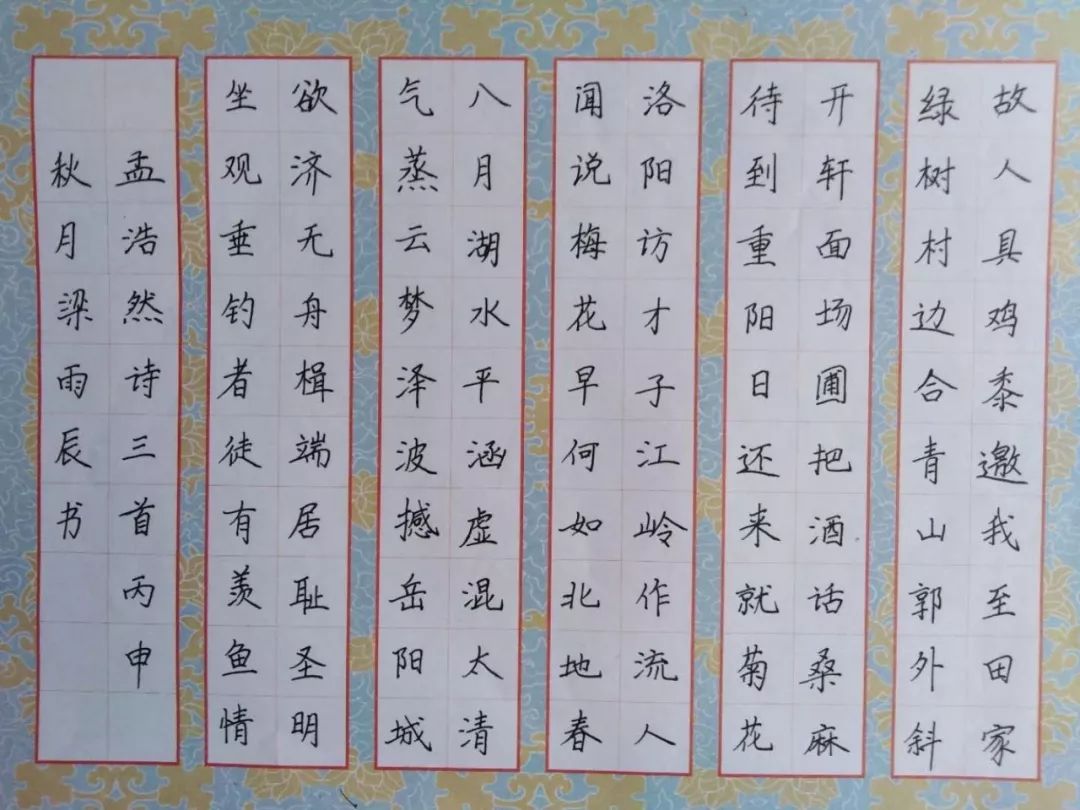 故人具鸡黍邀我至田家
绿树村边合青山郭外斜
开轩面场圃把酒话桑麻
待到重阳日还来就菊花
洛阳访才子江岭作流人
闻说梅花早何如北地春
八月湖水平涵虚混太清
气蒸云梦泽波撼岳阳城
欲济无舟楫端居耻圣明
坐观垂钓者徒有羡鱼情
孟浩然诗三首丙申
秋月梁雨辰书